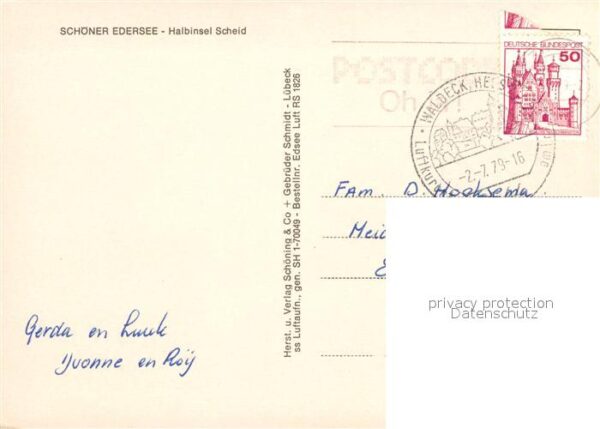 SCHÖNER EDERSEE - Halbinsel Scheid
DEUTSCHE BUNDESPOST
50
POSTCODE
Oh
WALDECK, HESS
Luftkurort
-2.-7.79-16
Fam. D. Hoeksema.
Meid
Herst. u. Verlag Schöning & Co + Gebrüder Schmidt - Lübeck
ss Luftaufn., gen. SH 1-70049 - Bestellnr. Edsee Luft RS 1826
privacy protection
Datenschutz
Gerda en Luuk
Yvonne en Röy